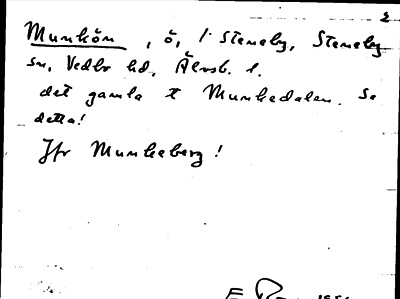 2
Munkön, ö, i Steneby, Steneby
sn, Vedbo hd, Älvsb. l.
det gamla & Munkedalen. Se
detta!
Jfr Munkeberg!
E